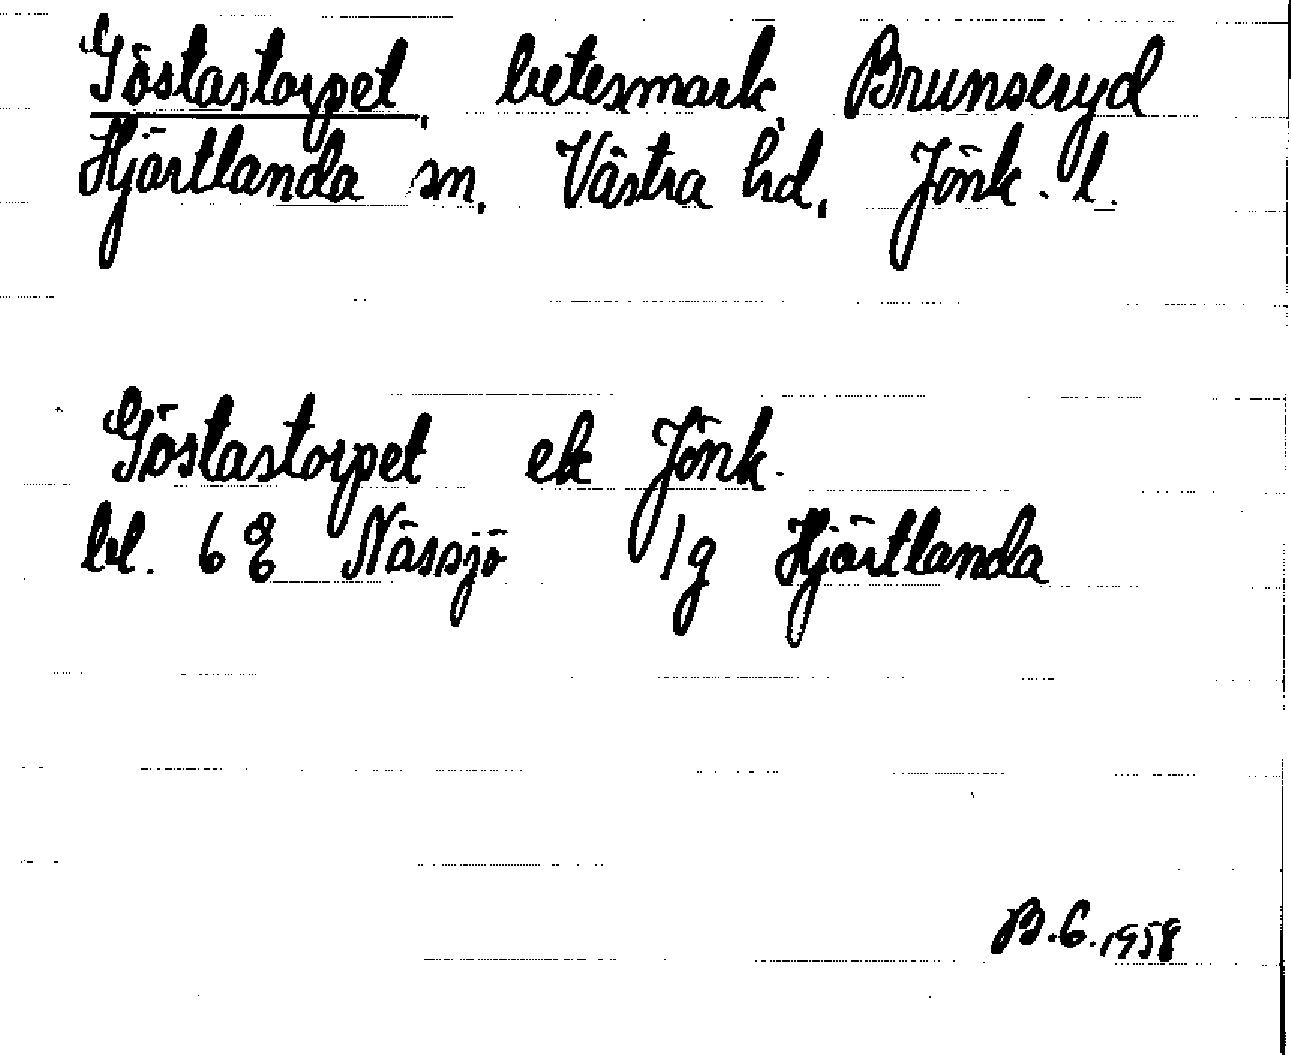 Göstastorpet, betesmark, Brunseryd
Hjärtlanda sn, Västra hd, Jönk. l.
Göstastorpet ek Jönk.
bl. 6 E Nässjö 1g Hjärtlanda
B.G. 1958